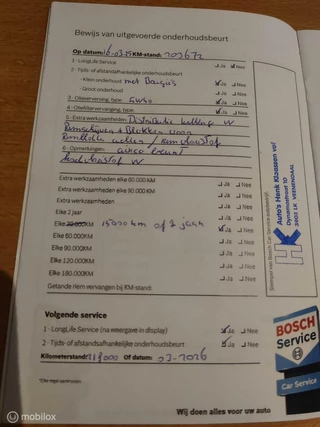 Bewijs van uitgevoerde onderhoudsbeurt
Op datum: 6-03-25 KM-stand: 203672
1 - LongLife Service Ja Nee
2 - Tijds- of afstandsafhankelijke onderhoudsbeurt
- Klein onderhoud met Bougies Ja Nee
- Groot onderhoud Ja Nee
3 - Olieverversing, type: 5W30 Ja Nee
4 - Oliefilterverversing, type: Ja Nee
5 - Extra werkzaamheden: Distributie ketting VV
Remschijven + Blokken voor
Remblokken achter / remvloeistof
6 - Opmerkingen: airco
koelvloeistof VV
Extra werkzaamheden elke 60.000 KM
Extra werkzaamheden elke 90.000 KM Ja Nee
Elke 2 jaar Ja Nee
Elke 30.000KM 15000 km of 1 jaar Ja Nee
Elke 60.000KM Ja Nee
Elke 90.000KM Ja Nee
Elke 120.000KM Ja Nee
Elke 180.000KM Ja Nee
Getande riem vervangen bij KM-stand:
Volgende service
1 - LongLife Service (na weergave in display) Ja Nee
2 - Tijds- of afstandsafhankelijke onderhoudsbeurt Ja Nee
Kilometerstand: 218000 Of datum: 03-2026
Stempel van Bosch Car Service autobedrijf:
HK
Auto's Henk Klaassen vof
Dynamostraat 10
3903 LK VEENENDAAL
BOSCH
Service
Car Service
Wij doen alles voor uw auto
© mobilox